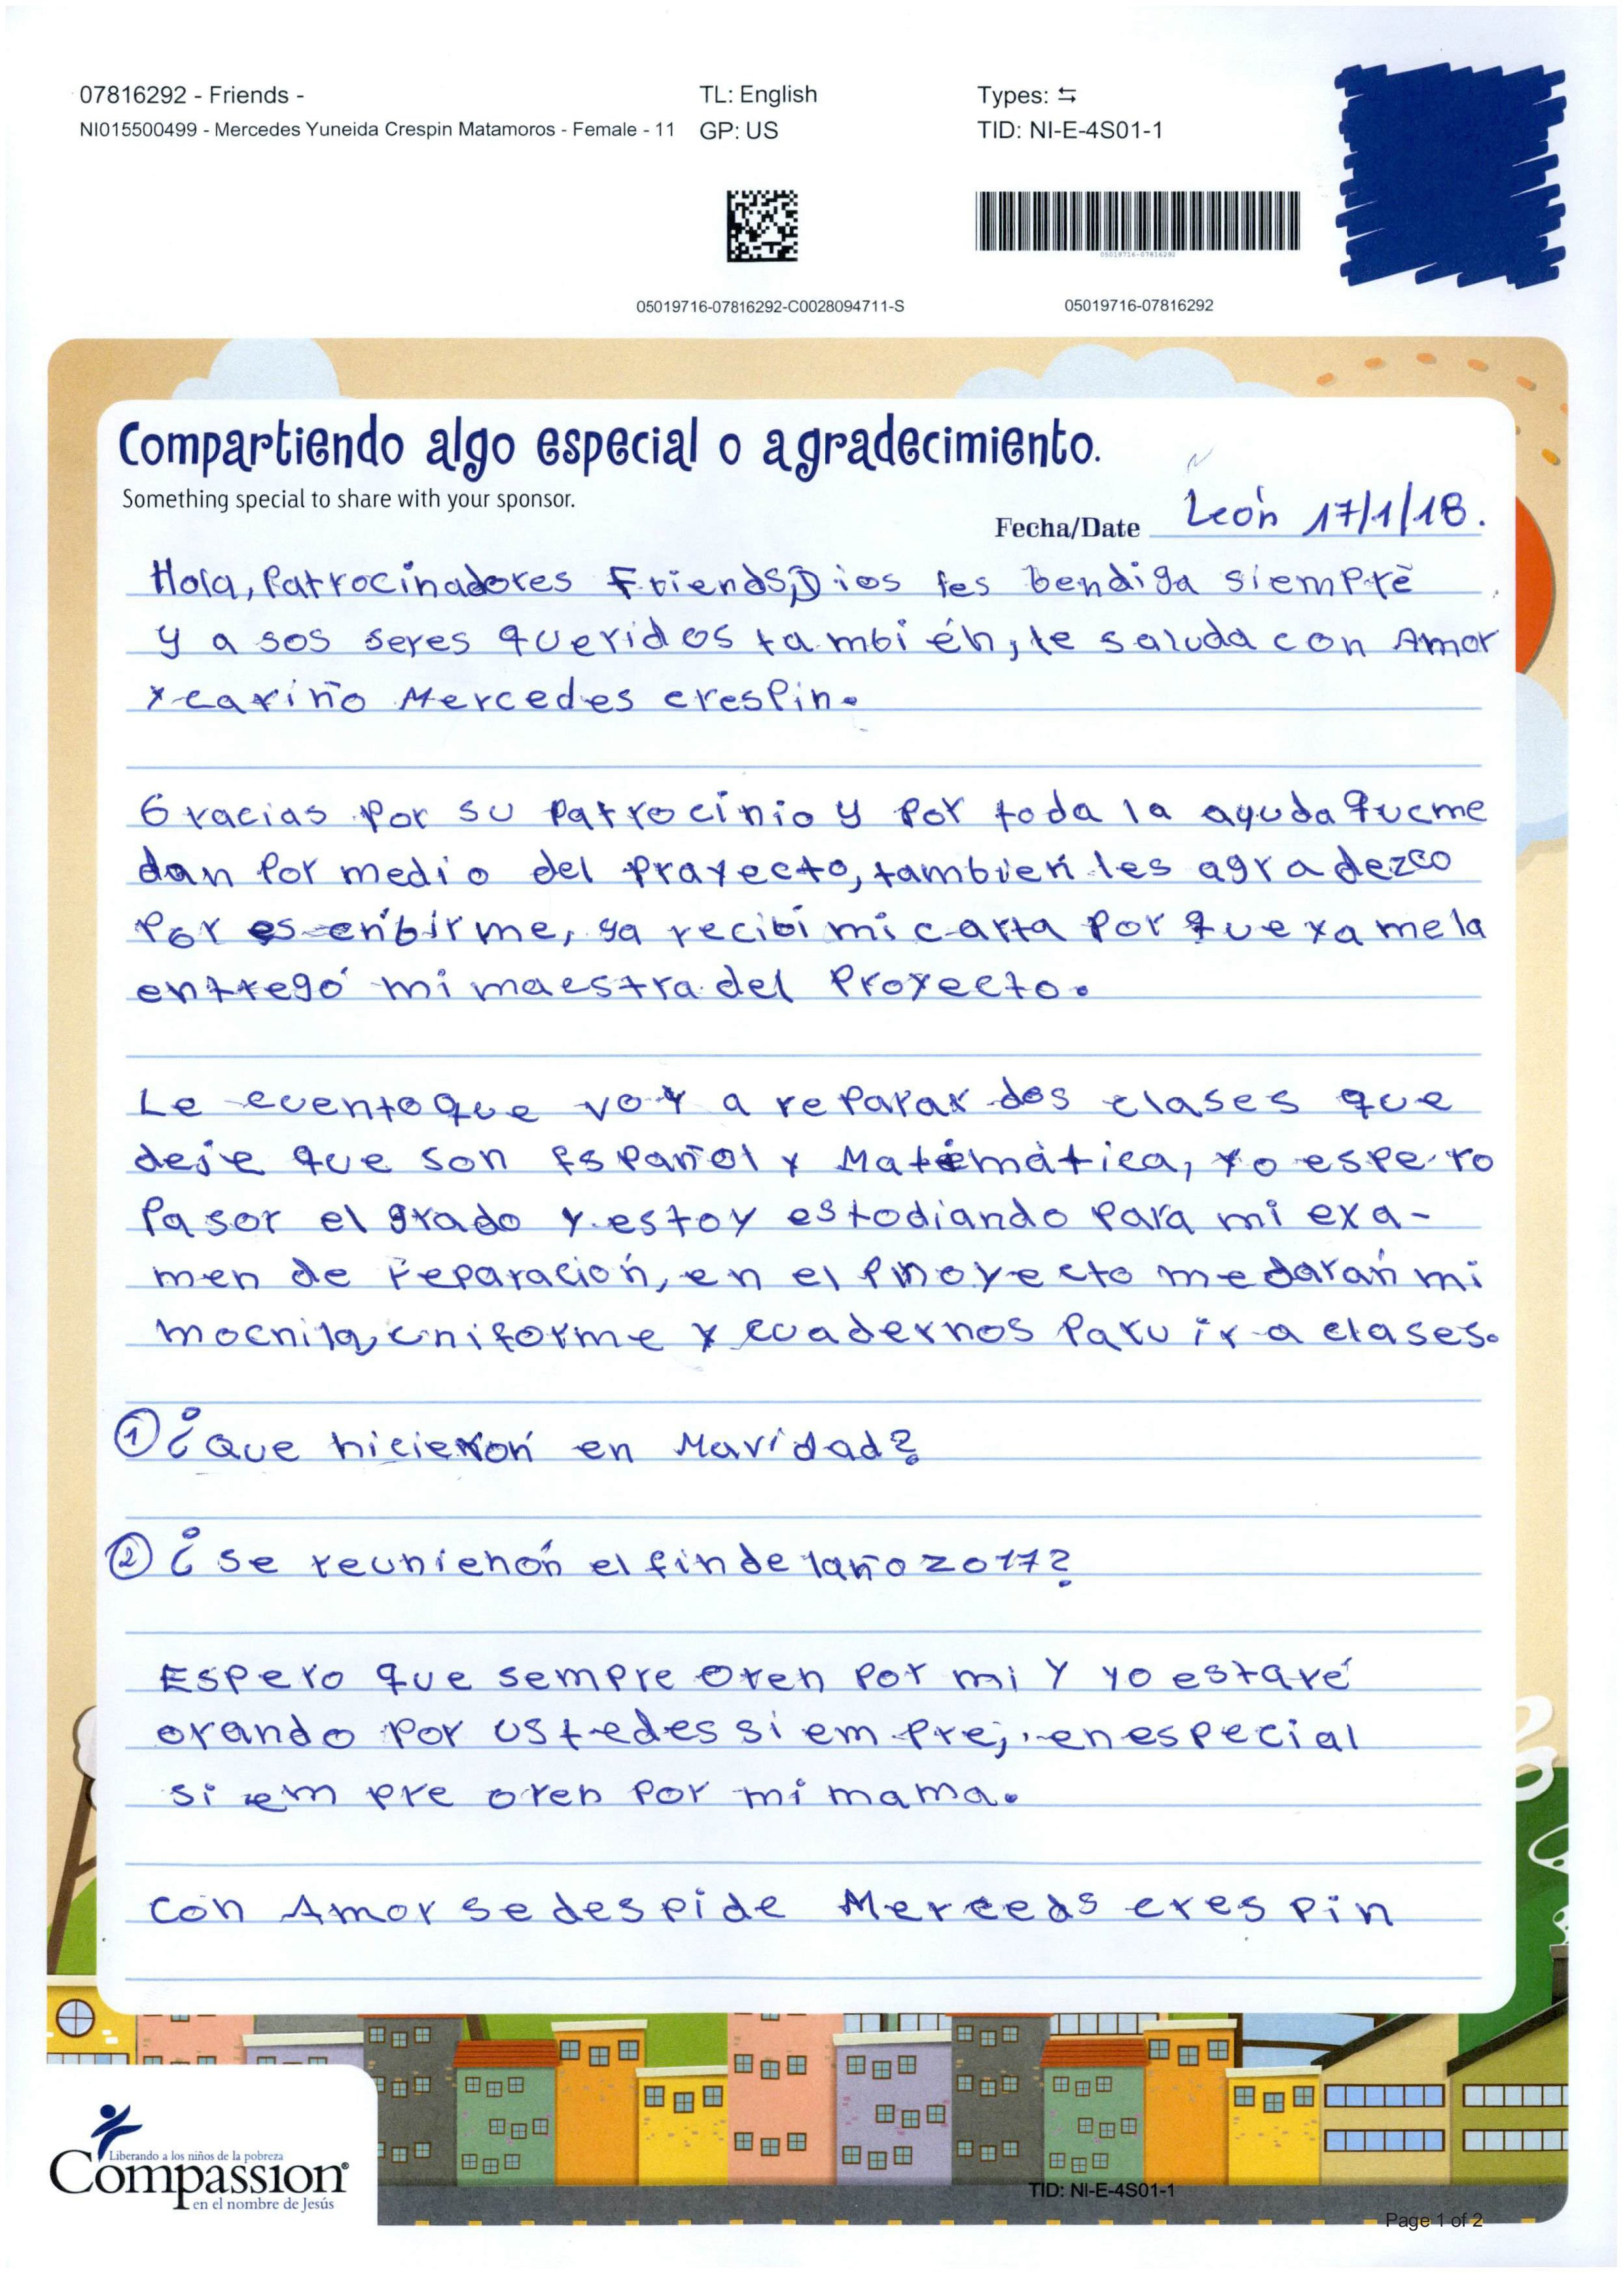 07816292 - Friends -
TL: English
Types: ⇆
NI015500499 - Mercedes Yuneida Crespin Matamoros - Female - 11
GP: US
TID: NI-E-4S01-1
05019716-07816292
05019716-07816292-C0028094711-S
05019716-07816292
Compartiendo algo especial o agradecimiento.
Something special to share with your sponsor.
Fecha/Date León 17/1/18.
Hola, Patrocinadores Friends, Dios les bendiga siempre
y a sos seres queridos también, le saluda con Amor
y cariño Mercedes crespin.
Gracias por su patrocinio y por toda la ayuda queme
dan por medio del prayecto, tambien les agradezco
por escribirme, ya recibí mi carta por que ya mela
entregó mi maestra del Proyecto.
Le cuento que voy a reparar dos clases que
deje que son Español y Matemática, yo espero
pasor el grado y estoy estodiando para mi exa-
men de reparación, en el proyecto me darán mi
mochila, uniforme y cuadernos para ir a clases.
① ¿Que hicieron en Navidad?
② ¿Se reunieron el fin de laño 2017?
Espero que sempre oren por mi y yo estaré
orando por ustedes siempre, en especial
siempre oren por mi mama.
Con Amor se despide Merceds crespin
Liberando a los niños de la pobreza
Compassion®
en el nombre de Jesús
TID: NI-E-4S01-1
Page 1 of 2